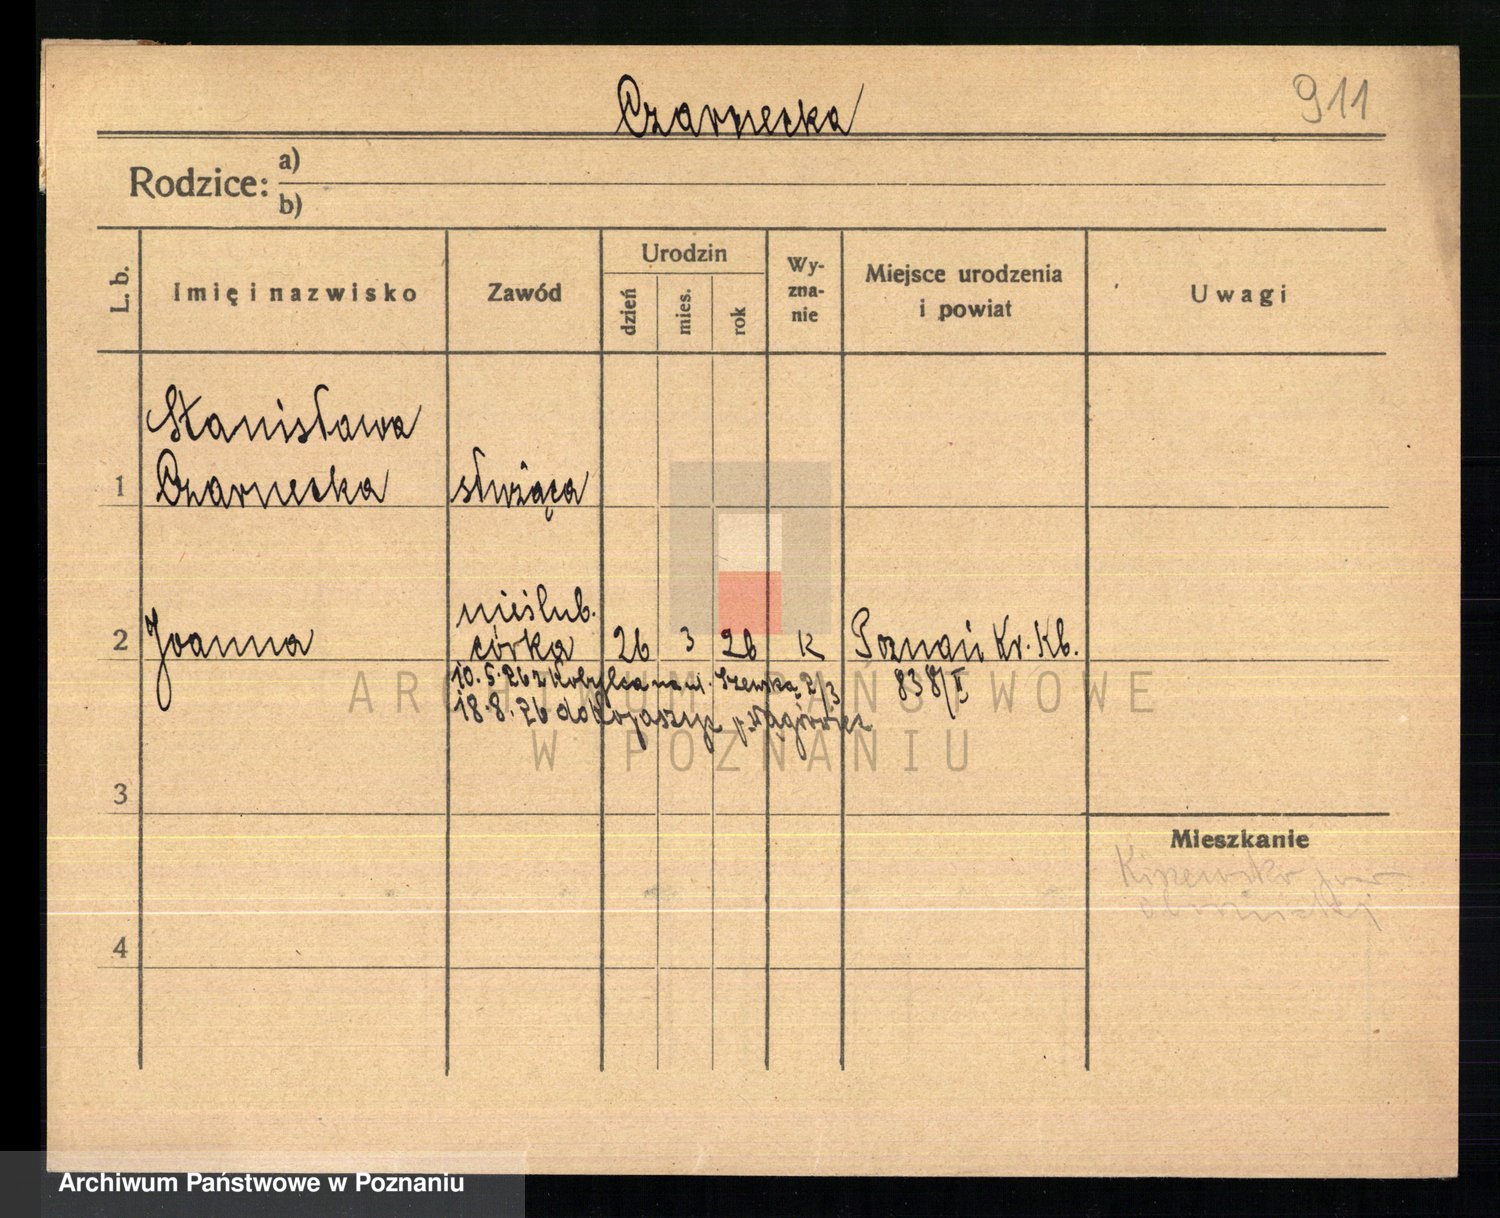 911
Czarnecka
Rodzice: a)
b)
L. b.
Imię i nazwisko
Zawód
Urodzin
dzień
mies.
rok
Wy-
zna-
nie
Miejsce urodzenia
i powiat
Uwagi
Stanisława
1 Czarnecka służąca
nieślub.
2 Joanna córka 26 3 26 k Poznań Kr. Kb.
10.5.26 z Kobylca na ul. Szewską 2/3 838/II
18.8.26 do p. Wągrowiec
ARCHIWUM PAŃSTWOWE
W POZNANIU
3
Mieszkanie
4
Archiwum Państwowe w Poznaniu